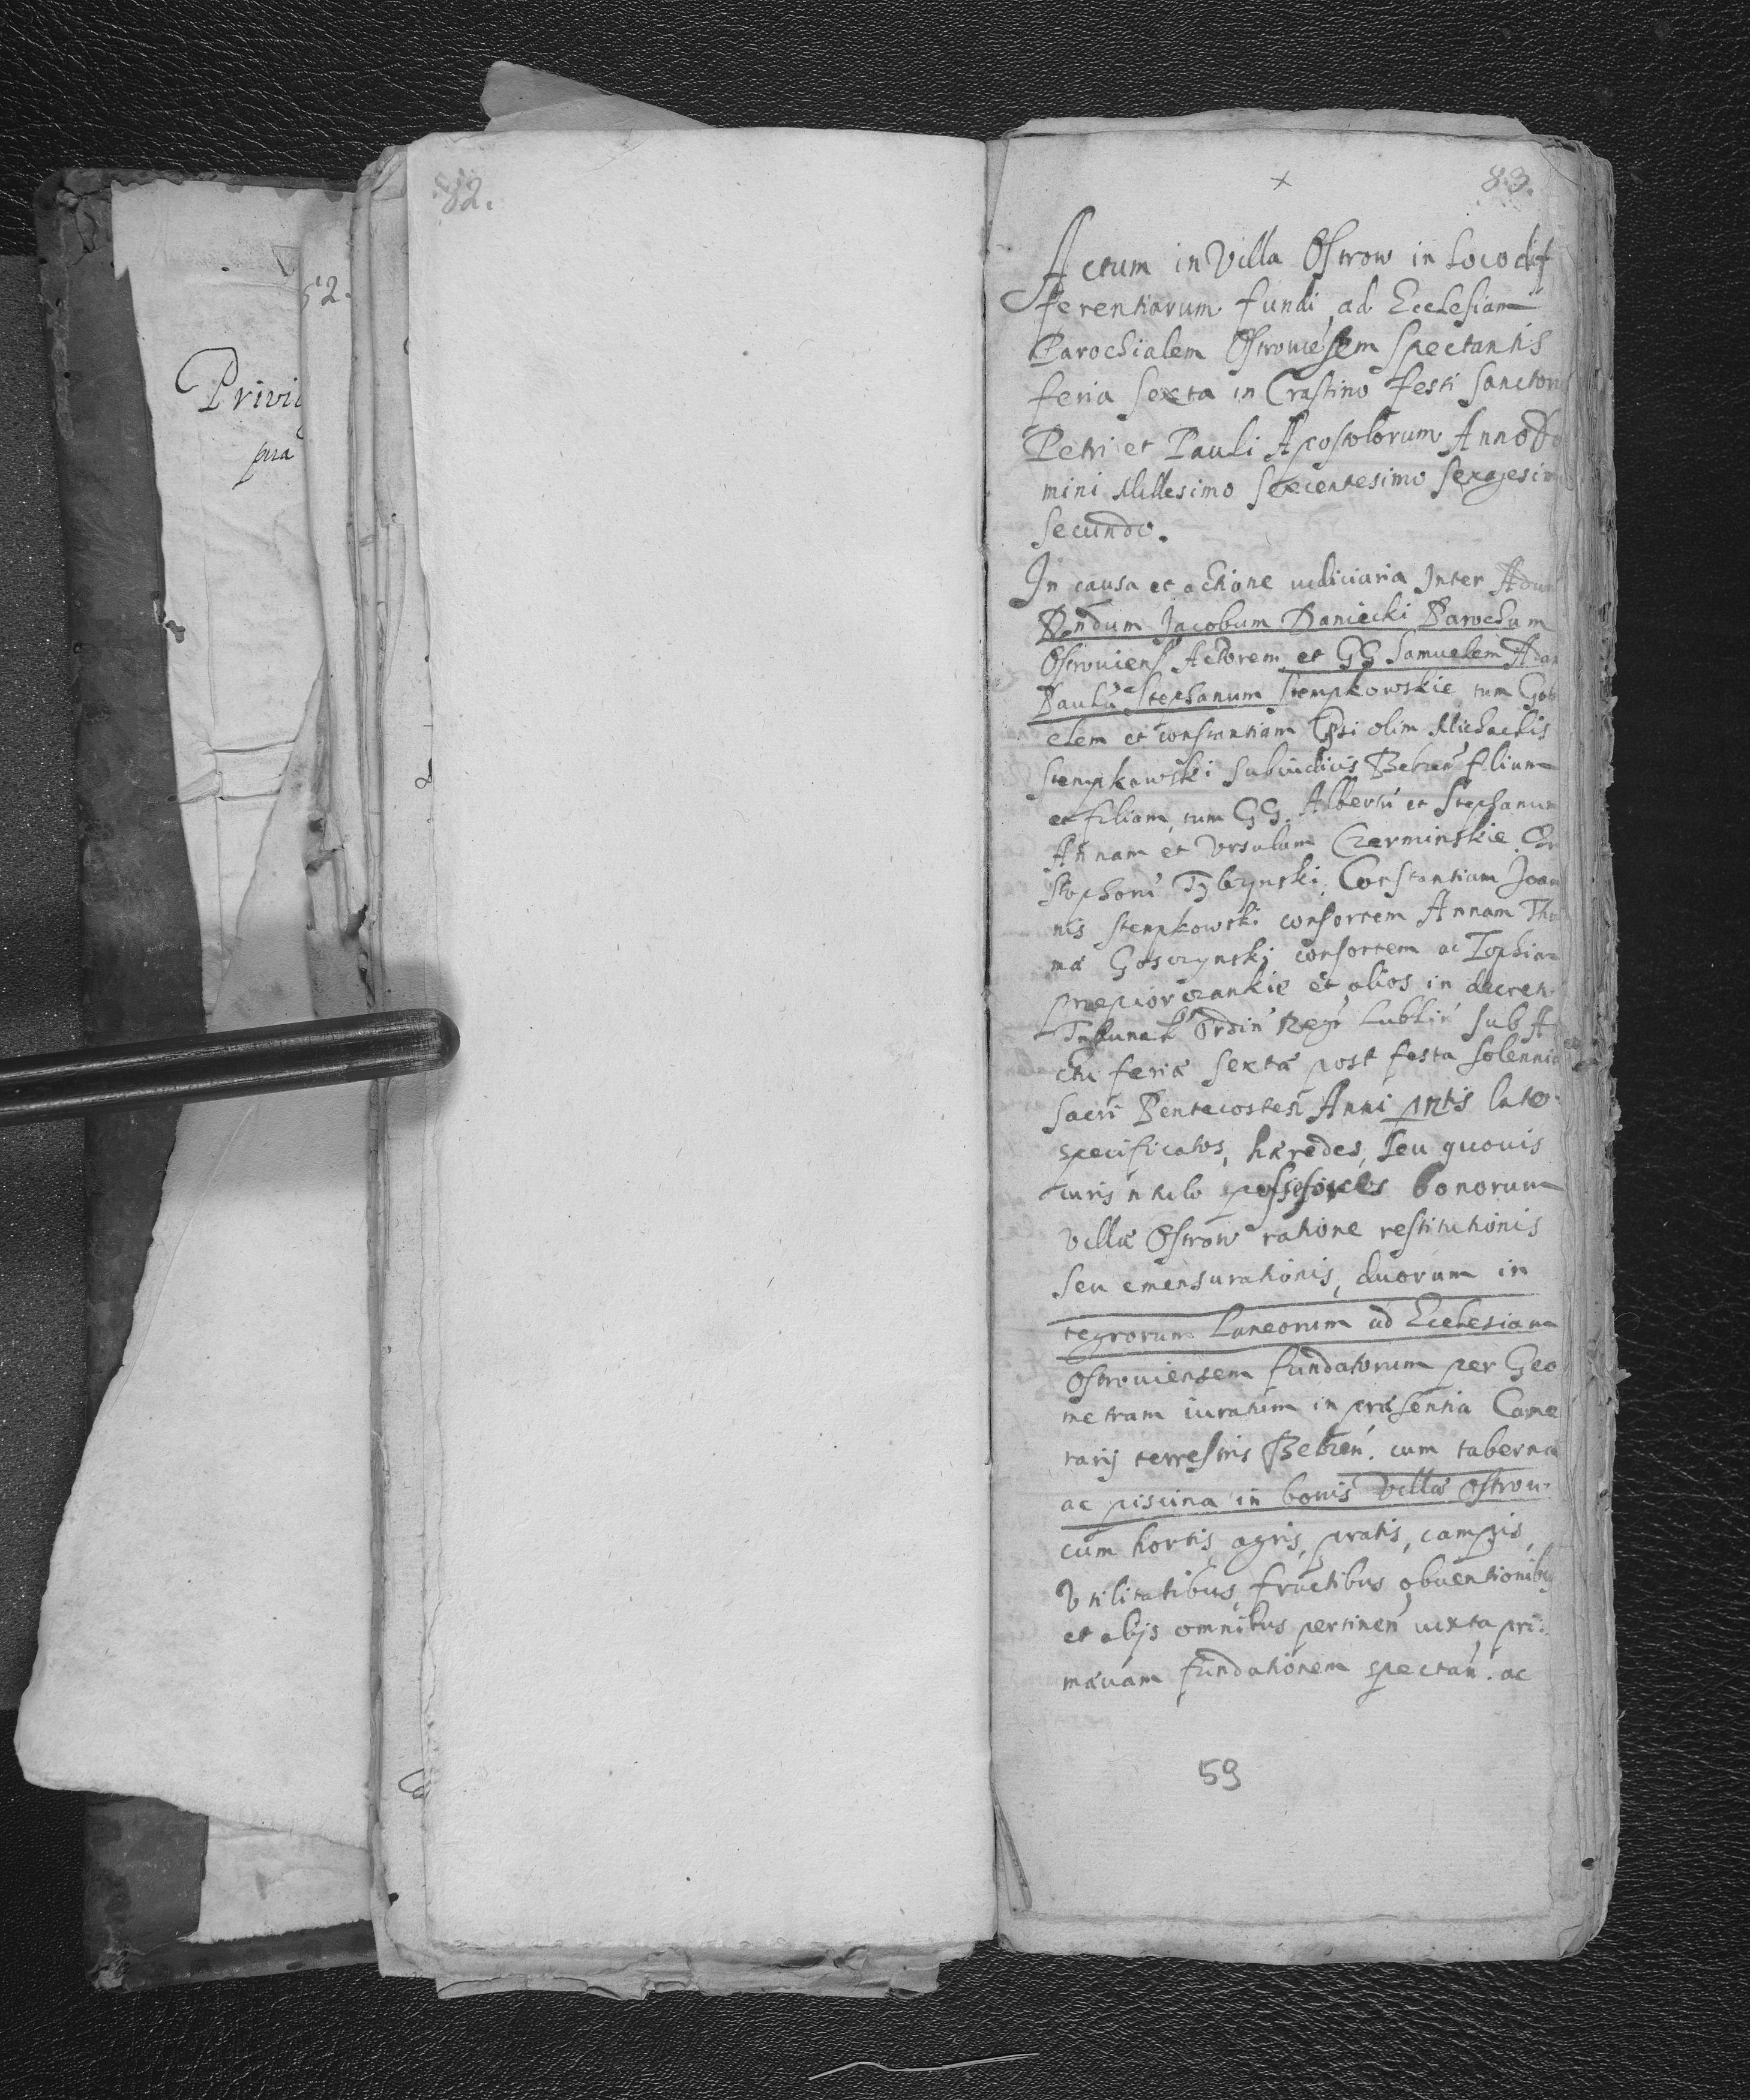 82.
52.
Privi
pra
83.
Actum in Villa Ostrow in Loco dif
ferentiarum fundi ad Ecclesiam
Parochialem Ostroviesem Spectantis
feria Sexta in Crastino festi Sanctoru
Petri et Pauli Apostolorum Anno Do
mini Millesimo Sexcentesimo Sexagesimo
Secundo.
In causa et actione iudiciaria Inter Adm
Rndum Jacobum Daniecki Parochum
Ostroviens Actorem et GG Samuelem Adam
Paulu Stephanum Stempkowskie tum Gab
elem et Constantiam Gsi olim Michaelis
Stempkowski Subiudicis Belzen filium
et filiam, tum GG. Albertu et Stephanum
Annam et Ursulam Czerminskie Chr
stophori Tybzynski, Constantiam Joan
nis Stempkowski consortem Annam Tho
mæ Goszynski consortem ac Zophiam
Przepiorczankie et alios in decreto
Tribunal Ordin Regn Lublin sub A
ctu feriæ Sextæ post festa Solennia
Sacri Pentecostes Anni prtis lateo
specificatos, hæredes, seu quovis
iuris titulo possessores bonorum
Villæ Ostrow ratione restitutionis
Seu emensurationis, duorum in
tegrorum Laneorum ad Ecclesiam
Ostroviensem fundatorum per Geo
metram iuratum in præsentia Came
rarij terrestris Belzen. cum taberna
ac piscina in bonis Villæ Ostrow
cum hortis agris, pratis, campis,
Utilitatibus, fructibus, obventionibus
et alijs omnibus pertinen iuxta pri
mævam fundationem spectan. ac
59